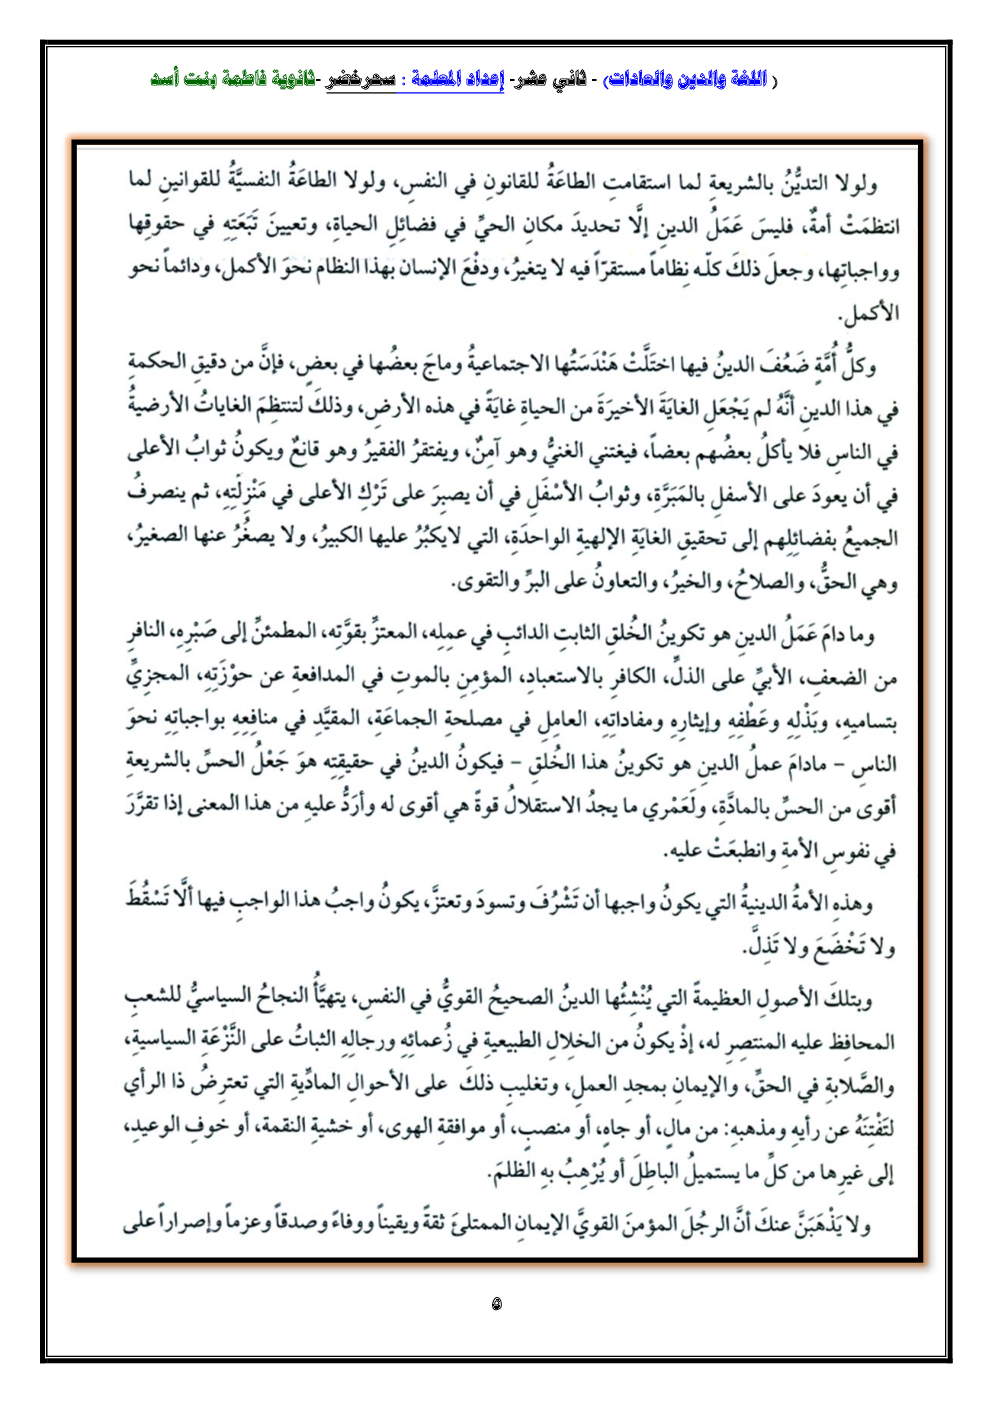 ( اللغة والدين والعادات) - ثاني عشر- إعداد المعلمة : سحر خضر -ثانوية فاطمة بنت أسد
ولولا التديُّنُ بالشريعةِ لما استقامتِ الطاعَةُ للقانونِ في النفسِ، ولولا الطاعَةُ النفسيَّةُ للقوانينِ لما
انتظمَتْ أمةٌ، فليسَ عَمَلُ الدينِ إلَّا تحديدَ مكانِ الحيِّ في فضائلِ الحياةِ، وتعيينَ تَبَعَتِهِ في حقوقِها
وواجباتِها، وجعلَ ذلكَ كلّه نِظاماً مستقرّاً فيه لا يتغيرُ، ودفْعَ الإنسان بهذا النظام نحوَ الأكمل، ودائماً نحو
الأكمل.
وكلُّ أُمَّةٍ ضَعُفَ الدينُ فيها اختَلَّتْ هَنْدَسَتُها الاجتماعيةُ وماجَ بعضُها في بعضٍ، فإنَّ من دقيقِ الحكمةِ
في هذا الدينِ أنَّهُ لم يَجْعَلِ الغايَةَ الأخيرَةَ من الحياةِ غايَةً في هذه الأرضِ، وذلكَ لتنتظِمَ الغاياتُ الأرضيةُ
في الناسِ فلا يأكلُ بعضُهم بعضاً، فيغتني الغنيُّ وهو آمِنٌ، ويفتقرُ الفقيرُ وهو قانعٌ ويكونُ ثوابُ الأعلى
في أن يعودَ على الأسفلِ بالمَبَرَّةِ، وثوابُ الأسْفَلِ في أن يصبِرَ على تَرْكِ الأعلى في مَنْزِلَتِهِ، ثم ينصرفُ
الجميعُ بفضائلِهم إلى تحقيقِ الغايَةِ الإلهيةِ الواحدَةِ، التي لايكبُرُ عليها الكبيرُ، ولا يصغُرُ عنها الصغيرُ،
وهي الحقُّ، والصلاحُ، والخيرُ، والتعاونُ على البرِّ والتقوى.
وما دامَ عَمَلُ الدينِ هو تكوينُ الخُلقِ الثابتِ الدائبِ في عملِه، المعتزِّ بقوَّتِه، المطمئنِّ إلى صَبْرِهِ، النافرِ
من الضعفِ، الأبيِّ على الذلِّ، الكافرِ بالاستعبادِ، المؤمنِ بالموتِ في المدافعةِ عن حوْزَتِهِ، المجزيِّ
بتساميهِ، وبَذْلِهِ وعَطْفِهِ وإيثارِه ومفاداتِهِ، العاملِ في مصلحةِ الجماعَةِ، المقيَّدِ في منافعِه بواجباتِهِ نحوَ
الناسِ - مادامَ عملُ الدينِ هو تكوينُ هذا الخُلقِ - فيكونُ الدينُ في حقيقتِه هوَ جَعْلُ الحسِّ بالشريعةِ
أقوى من الحسِّ بالمادَّةِ، ولَعَمْري ما يجدُ الاستقلالُ قوةً هي أقوى له وأرَدُّ عليهِ من هذا المعنى إذا تقرَّرَ
في نفوسِ الأمةِ وانطبعَتْ عليه.
وهذهِ الأمةُ الدينيةُ التي يكونُ واجبها أن تَشْرُفَ وتسودَ وتعتزَّ، يكونُ واجبُ هذا الواجبِ فيها ألَّا تَسْقُطَ
ولا تَخْضَعَ ولا تَذِلَّ.
وبتلكَ الأصولِ العظيمةَ التي يُنْشِئُها الدينُ الصحيحُ القويُّ في النفسِ، يتهيَّأُ النجاحُ السياسيُّ للشعبِ
المحافظِ عليه المنتصرِ له، إذْ يكونُ من الخلالِ الطبيعيةِ في زُعمائِهِ ورجالِهِ الثباتُ على النَّزْعَةِ السياسيةِ،
والصَّلابةِ في الحقِّ، والإيمانِ بمجدِ العملِ، وتغليبِ ذلكَ على الأحوالِ المادِّيةِ التي تعترِضُ ذا الرأي
لتَفْتِنَهُ عن رأيِه ومذهبِهِ: من مالٍ، أو جاهٍ، أو منصبٍ، أو موافقةِ الهوى، أو خشيةِ النقمة، أو خوفِ الوعيدِ،
إلى غيرِها من كلِّ ما يستميلُ الباطِلَ أو يُرْهِبُ بهِ الظلمَ.
ولا يَذْهَبَنَّ عنكَ أنَّ الرجُلَ المؤمنَ القويَّ الإيمانِ الممتلئَ ثقةً ويقيناً ووفاءً وصدقاً وعزماً وإصراراً على
٥